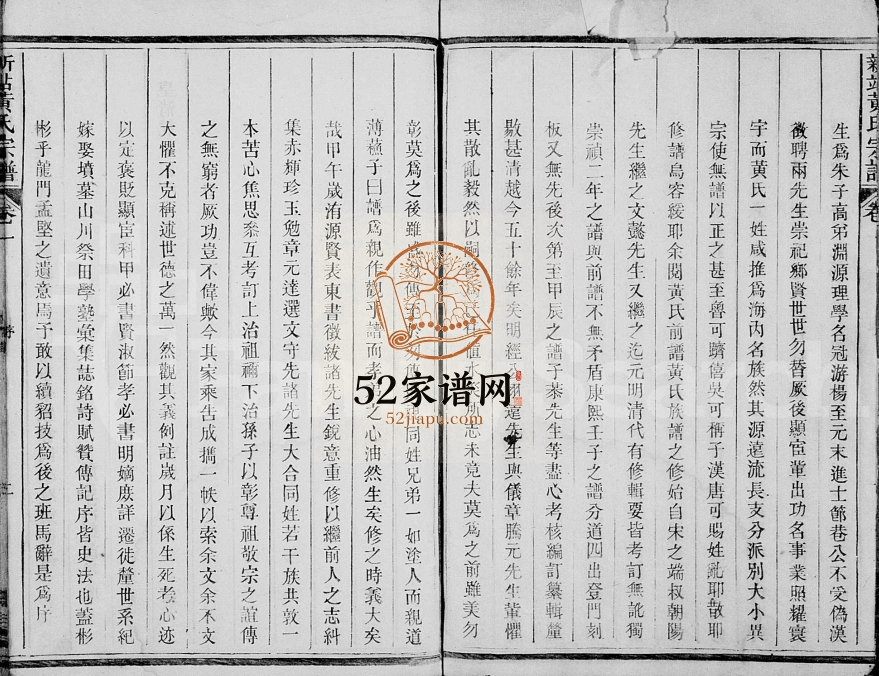 新站黃氏宗譜 卷
生爲朱子高弟淵源理學名冠游楊至元末進士節巷公不受僞漢
徵聘兩先生崇祀鄉賢世世勿替厥後顯宦輩出功名事業照耀寰
宇而黃氏一姓咸推爲海內名族然其源遠流長支分派別大小異
宗使無譜以正之甚至魯可躋僖吳可稱子漢唐可賜姓亂耶散耶
修譜烏容緩耶余閱黃氏前譜黃氏族譜之修始自宋之端叔朝陽
先生繼之文懿先生又繼之迄元明清代有修輯要皆考訂無訛獨
崇禎二年之譜與前譜不無矛盾康熙壬子之譜分道四出登門刻
板又無先後次第至甲辰之譜子恭先生等盡心考核編訂纂輯釐
剔甚清越今五十餘年矣明經 遠先生與儀章騰元先生輩懼
其散亂毅然以嗣 志未竟夫莫爲之前雖美勿
彰莫爲之後雖 同姓兄弟一如塗人而親道
薄蘇子曰譜爲親作觀乎譜而孝 之心油然生矣修之時義大矣
哉甲午歲洧源賢表東書徵紋諸先生銳意重修以繼前人之志糾
集赤輝珍玉勉章元達選文守先諸先生大合同姓若干族共敦一
本苦心焦思叅互考訂上治祖禰下治孫子以彰尊祖敬宗之誼傳
之無窮者厥功豈不偉歟今其家乘告成携一帙以索余文余不文
大懼不克稱述世德之萬一然觀其義例註歲月以係生死考心迹
以定褒貶顯宦科甲必書賢淑節孝必書明嫡庶詳遷徙釐世系紀
嫁娶墳墓山川祭田學藝彙集誌銘詩賦贊傳記序皆史法也蓋彬
彬乎龍門孟堅之遺意焉予敢以續貂技爲後之班馬辭是爲序
新站黃氏宗譜 卷一
52家谱网
52jiapu.com